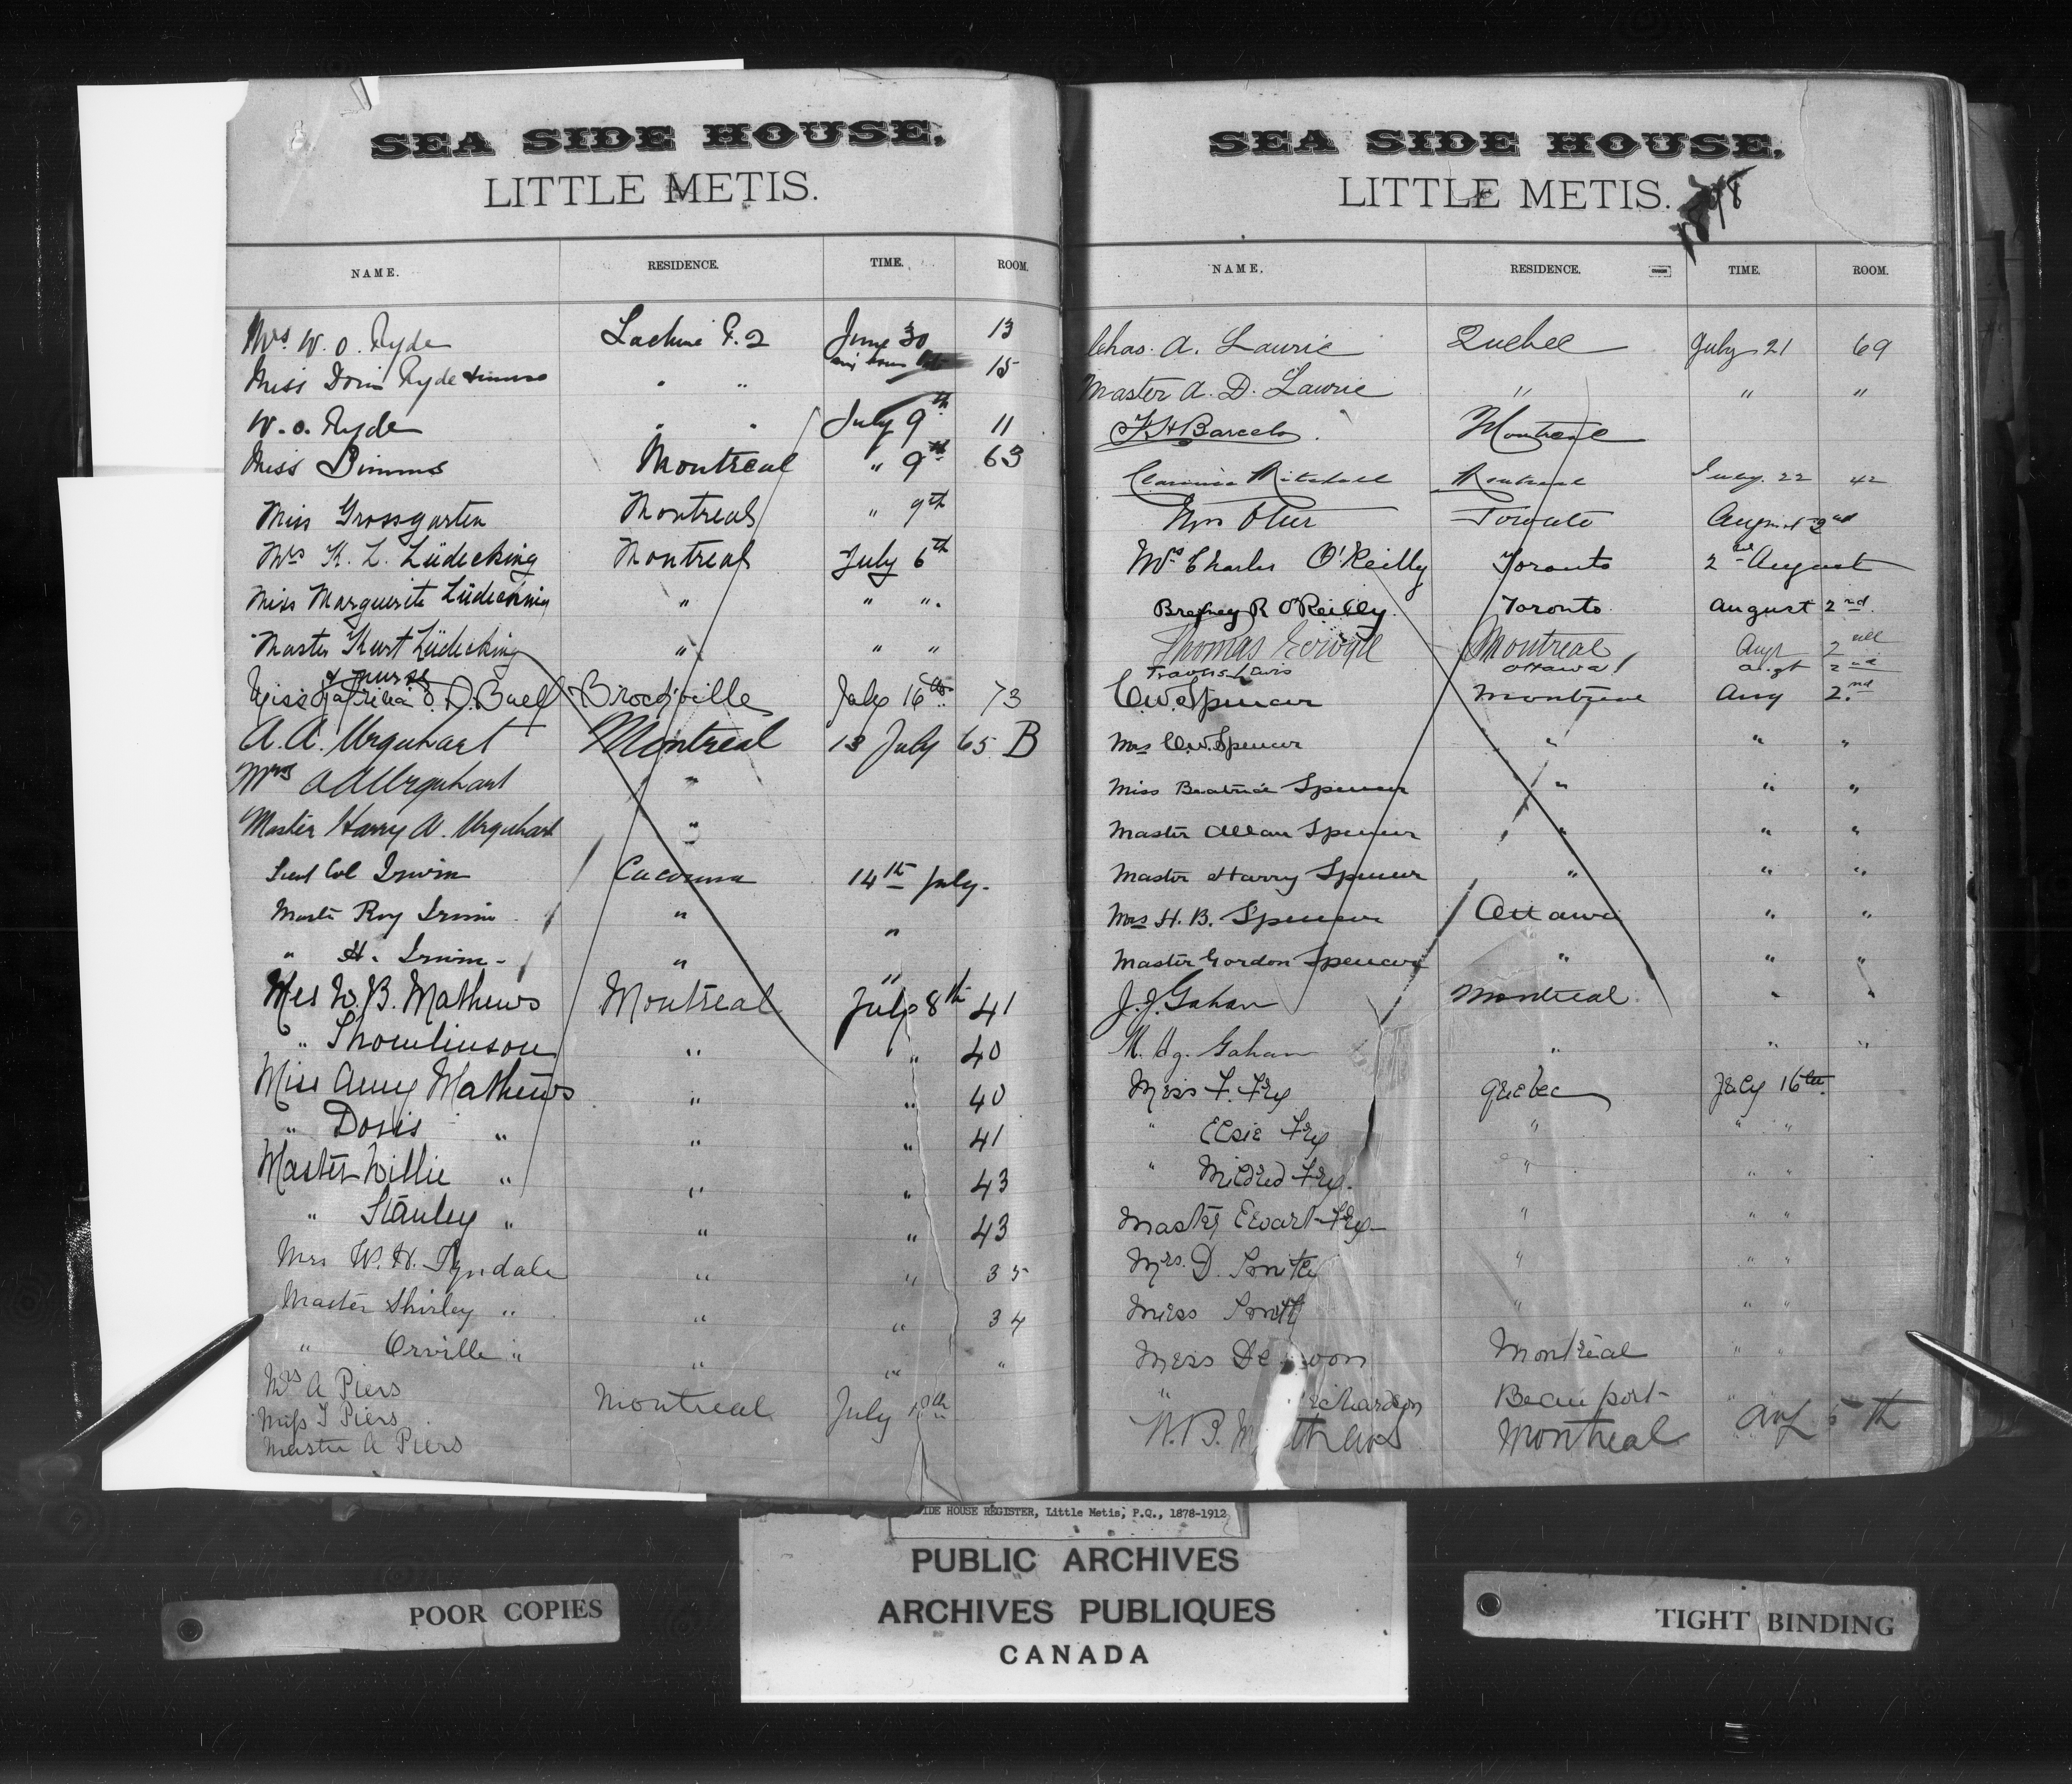 SEA SIDE HOUSE,
LITTLE METIS.
NAME. RESIDENCE. TIME. ROOM.
Mrs W. O. Ryde Lachine P.Q June 30 13
Miss Doris Ryde " " 15
W. O. Ryde " " July 9th 11
Miss Simms Montreal " 9th 63
Miss Grossgarten Montreal " 9th
Mrs K. L. Lüdecking Montreal July 6th
Miss Marguerite Lüdecking " " ".
Master Kurt Lüdecking " " "
& nurse
Miss O. D. Buell Brockville July 16th 73
A. A. Urquhart Montreal 13 July 65 B
Mrs A A Urquhart "
Master Harry A. Urquhart "
Lieut Col Irwin Cacouna 14th July.
Master Roy Irwin " "
" H. Irwin - " "
Mrs W. B. Mathews Montreal July 8th 41
" Thomlinson " " 40
Miss Amy Mathews " " 40
" Doris " " " 41
Master Willie " " " 43
" Stanley " " " 43
Mrs W. H. Tyndale " " 35
Master Shirley " " " 34
" Orville " " " "
Mrs A Piers
Miss J Piers Montreal July
Master A Piers
SEA SIDE HOUSE,
LITTLE METIS. 1898
NAME. RESIDENCE. TIME. ROOM.
Chas. A. Lawrie Quebec July 21 69
Master A. D. Lawrie " " "
F H Barcelo. Montreal
Clarence Mitchell Montreal July. 22 42
Mrs Otter Toronto August 2nd
Mrs Charles O'Reilly Toronto 2nd August
Brefney R O'Reilly. Toronto. August 2nd.
Thomas Montreal Augt 2nd
Travers Lewis Ottawa Augt 2nd
C.W. Spencer Montreal Aug 2.nd
Mrs C.W. Spencer " " "
Miss Beatrice Spencer " " "
Master Allan Spencer " " "
Master Harry Spencer " " "
Mrs H. B. Spencer Ottawa " "
Master Gordon Spencer " " "
J. J. Gahan Montreal " "
M. Gahan " " "
Miss F. Fry Quebec July 16th.
" Elsie Fry " " "
" Mildred Fry. " " "
Master Ewart Fry " " "
Mrs. D. Smith " " "
Miss Smith " " "
Miss Montreal " "
" Beauport "
W. B. Mathews Montreal Aug 5th
SIDE HOUSE REGISTER, Little Metis, P.Q., 1878-1912
PUBLIC ARCHIVES
ARCHIVES PUBLIQUES
CANADA
POOR COPIES
TIGHT BINDING